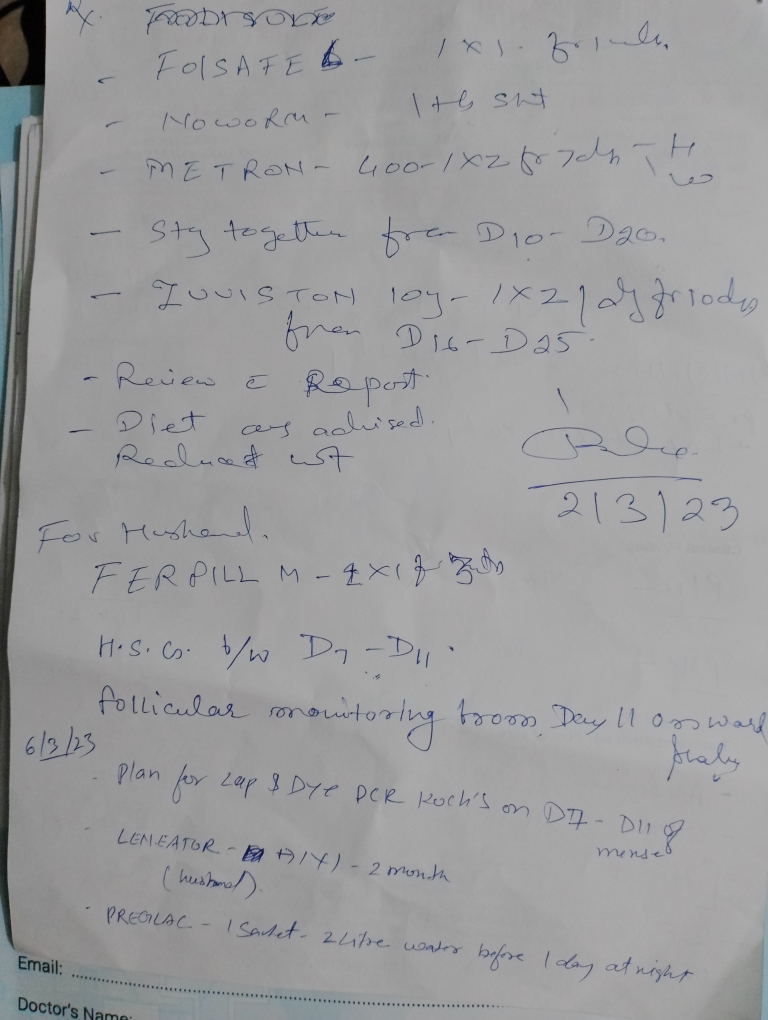 Rx.
- FolSAFE - 1 x 1.
- NOWORM - 1 tb stat
- METRON - 400 - 1x2 for 7 ds - H
W
- Stay together from D10 - D20.
- ZUVISTON 10 - 1x2 / dy for 10 ds
from D16 - D25.
- Review c Report.
- Diet as advised.
Reduced wt
2/3/23
For Husband.
FERPILL M - 1x1
H.S.G. b/w D7 - D11.
follicular monitoring from Day 11 onward
6/3/23
- Plan for Lap & Dye PCR Koch's on D7 - D11 of
menses
- LEMEATOR - 1x1 - 2 month
(husband).
- PREGLAC - 1 Sachet - 2 Litre water before 1 day at night
Email:
Doctor's Name: